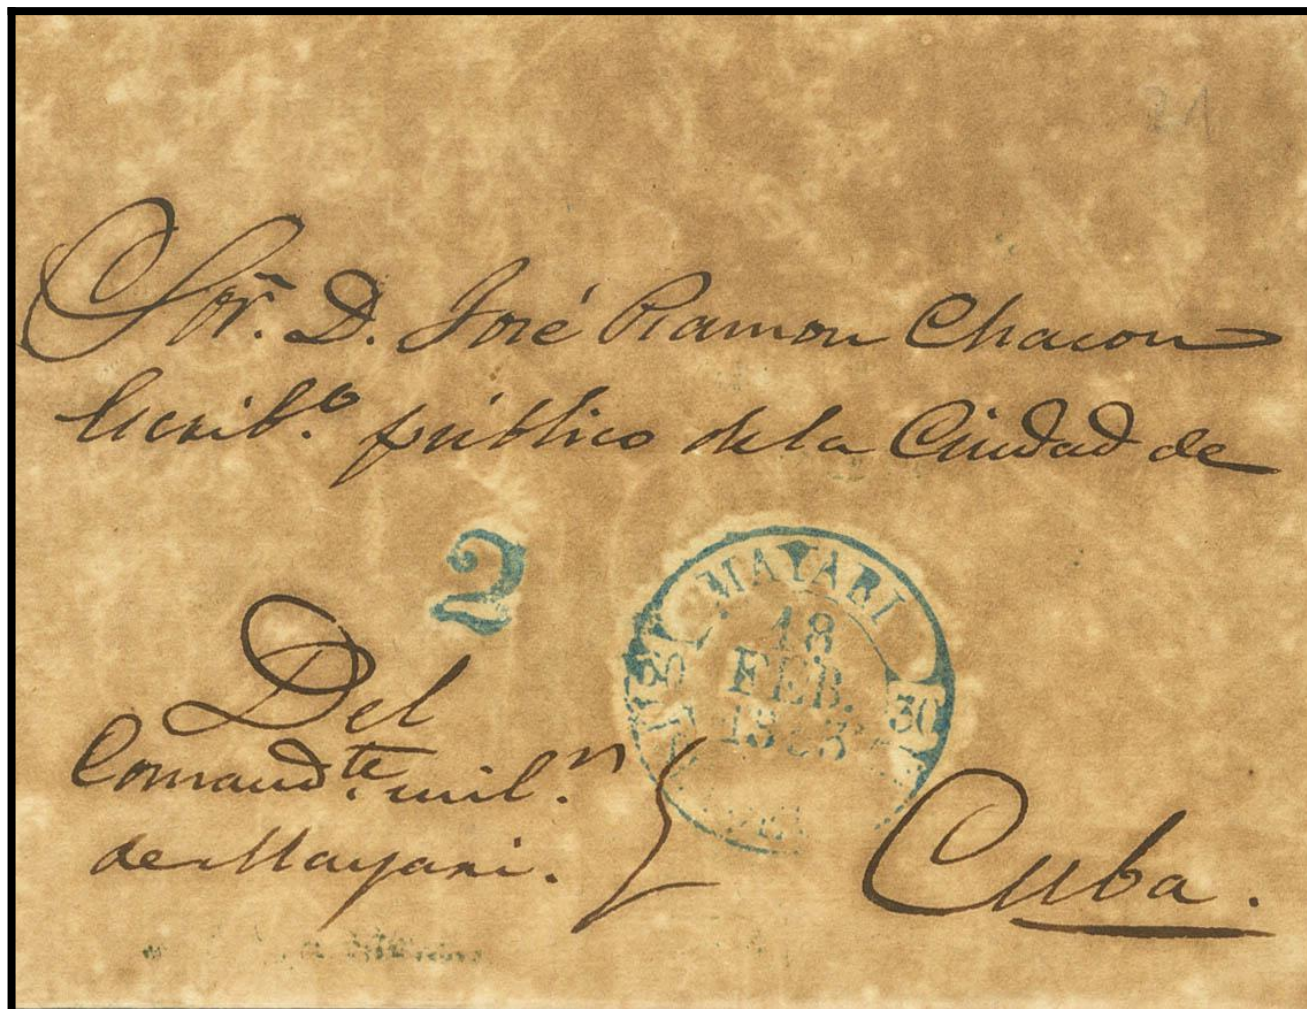 Sor. D. José Ramon Chacon
Escrib.º público de la Ciudad de
2
MAYARI
18
FEB.
30
Del
Comand.te mil.r
de Mayari.
Cuba.